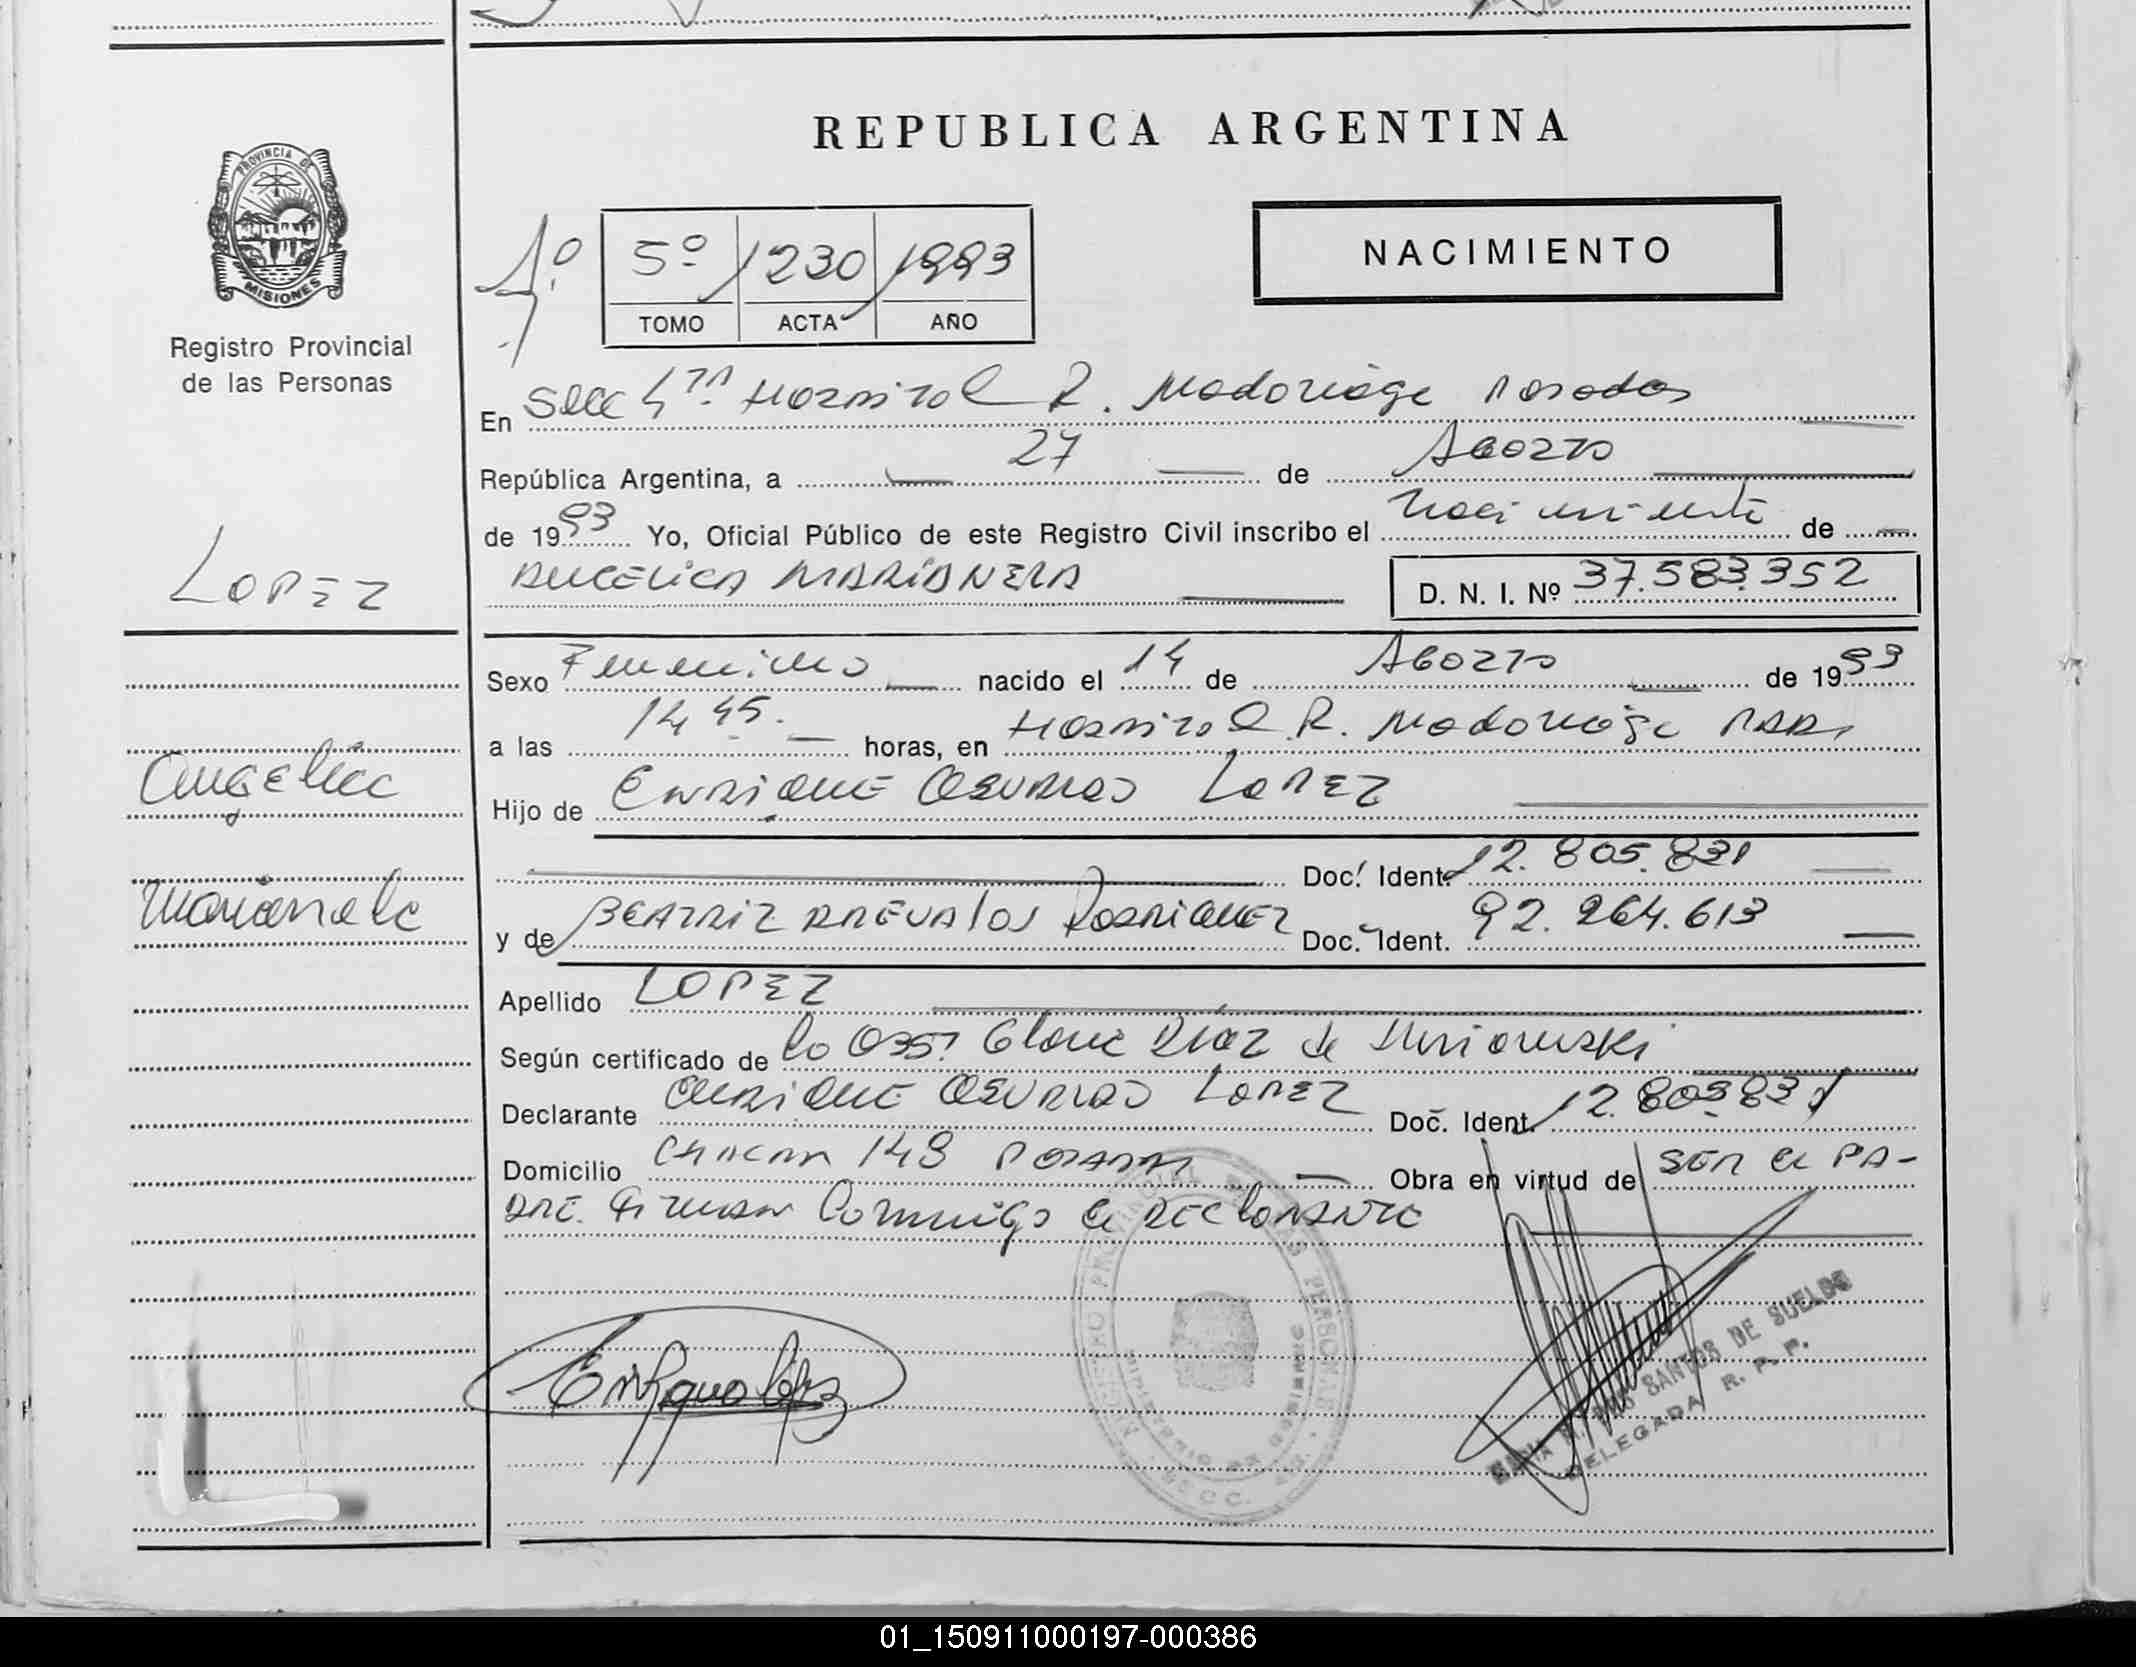 REPUBLICA ARGENTINA
PROVINCIA DE
MISIONES
Registro Provincial
de las Personas
5º 1230 1993
TOMO ACTA AÑO
NACIMIENTO
En Secc 4ta. Hospital R. Madariaga Posadas
República Argentina, a 27 de Agosto
de 1993 Yo, Oficial Público de este Registro Civil inscribo el Nacimiento de
ANGELICA MARIANELA D. N. I. Nº 37.583.352
LOPEZ
Sexo Femenino nacido el 14 de Agosto de 1993
a las 14 45. horas, en Hospital R. Madariaga
Angelica
Hijo de ENRIQUE OSVALDO LOPEZ
Doc. Ident. 12.805.831
Marianela
y de BEATRIZ AREVALOS RODRIGUEZ Doc. Ident. 92.264.613
Apellido LOPEZ
Según certificado de la Obst Díaz de
Declarante ENRIQUE OSVALDO LOPEZ Doc. Ident. 12.805.831
Domicilio 148 POSADAS Obra en virtud de SER el PA-
DRE. Firman Conmigo el DECLARANTE
Enrique López
REGISTRO PROVINCIAL DE LAS PERSONAS
SANTOS DE SUELDO
DELEGADA R. P. P.
01_150911000197-000386